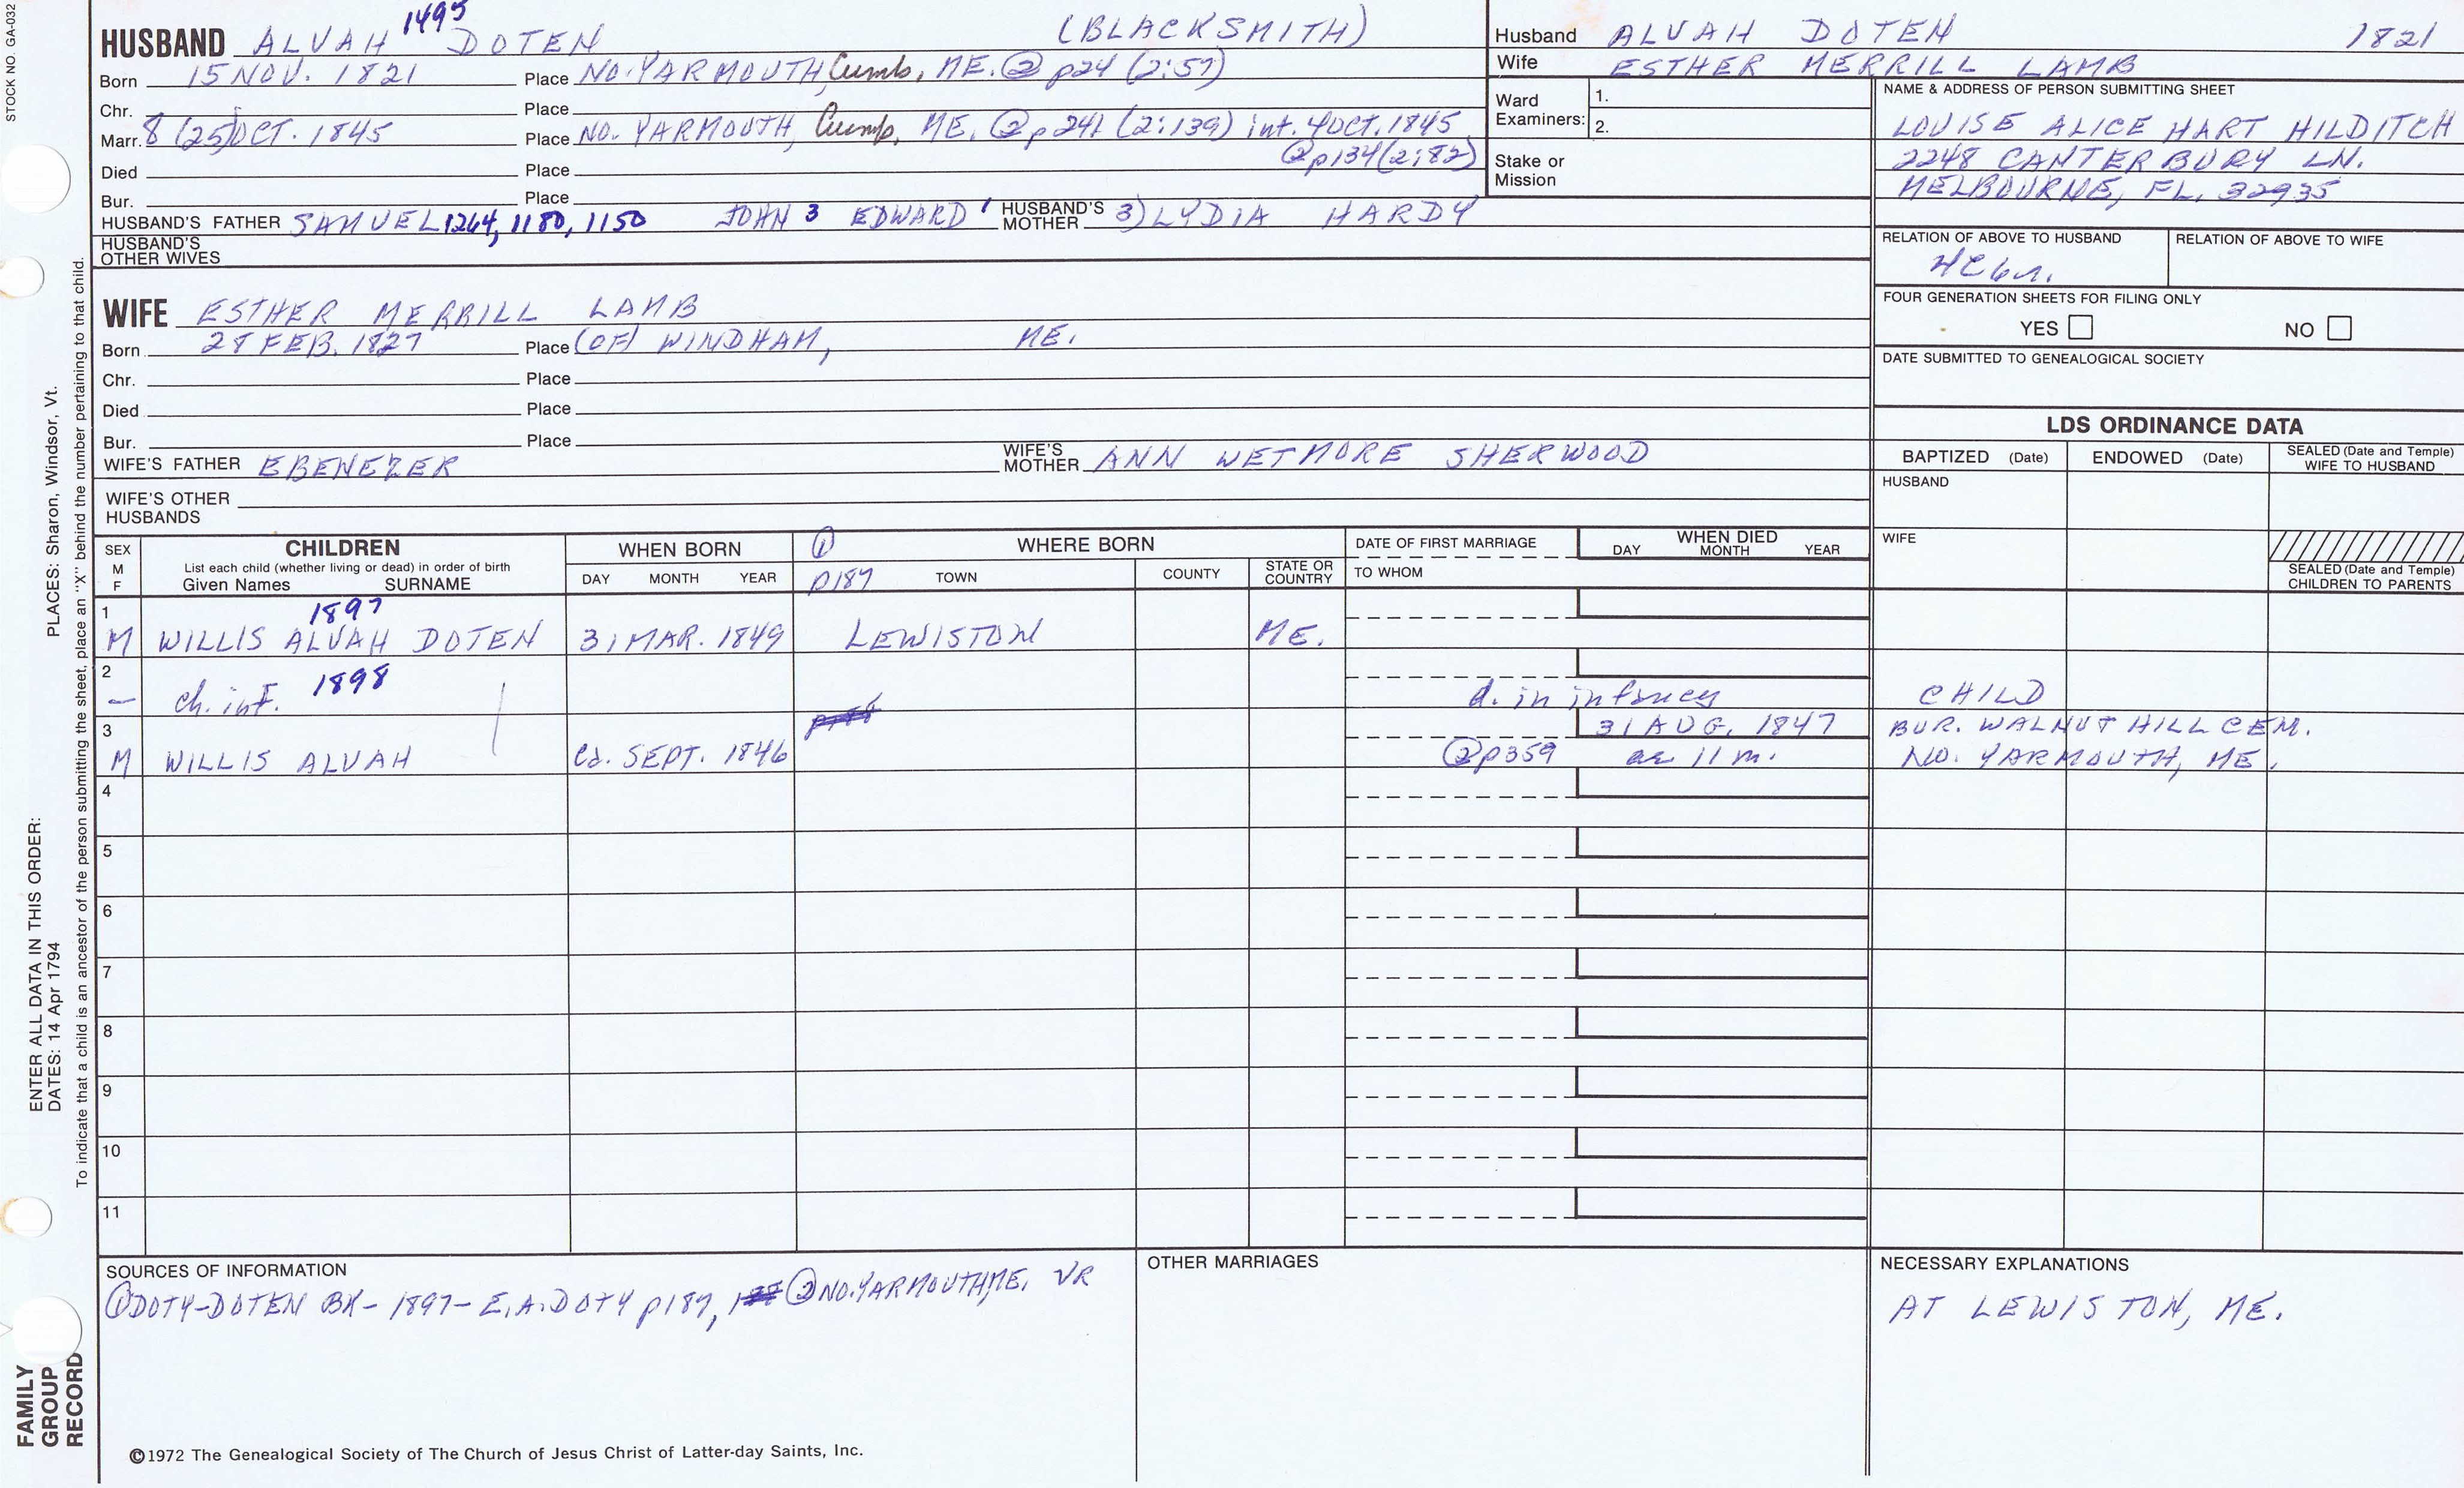 STOCK NO. GA-032
1495
HUSBAND ALVAH DOTEN (BLACKSMITH)
Born 15 NOV. 1821 Place NO. YARMOUTH, Cumb, ME. ② p24 (2:57)
Chr. Place
Marr. 8 (25) OCT. 1845 Place NO. YARMOUTH, Cumb, ME. ② p 241 (2:139) int. 4 OCT. 1845
② p134 (2:82)
Died Place
Bur. Place
HUSBAND'S FATHER SAMUEL 1264, 1180, 1150 JOHN 3 EDWARD 1 HUSBAND'S MOTHER 3) LYDIA HARDY
HUSBAND'S OTHER WIVES
WIFE ESTHER MERRILL LAMB
Born 28 FEB. 1827 Place (OF) WINDHAM, ME.
Chr. Place
Died Place
Bur. Place
WIFE'S FATHER EBENEZER WIFE'S MOTHER ANN WETMORE SHERWOOD
WIFE'S OTHER HUSBANDS
Husband ALVAH DOTEN 1821
Wife ESTHER MERRILL LAMB
Ward Examiners: 1.
2.
Stake or Mission
NAME & ADDRESS OF PERSON SUBMITTING SHEET
LOUISE ALICE HART HILDITCH
2248 CANTERBURY LN.
MELBOURNE, FL. 32935
RELATION OF ABOVE TO HUSBAND RELATION OF ABOVE TO WIFE
FOUR GENERATION SHEETS FOR FILING ONLY
YES NO
DATE SUBMITTED TO GENEALOGICAL SOCIETY
LDS ORDINANCE DATA
BAPTIZED (Date) ENDOWED (Date) SEALED (Date and Temple) WIFE TO HUSBAND
HUSBAND
WIFE
SEALED (Date and Temple) CHILDREN TO PARENTS
SEX M F
CHILDREN
List each child (whether living or dead) in order of birth
Given Names SURNAME
WHEN BORN
DAY MONTH YEAR
① WHERE BORN
p187 TOWN COUNTY STATE OR COUNTRY
DATE OF FIRST MARRIAGE
TO WHOM
WHEN DIED
DAY MONTH YEAR
1 1897
M WILLIS ALVAH DOTEN 31 MAR. 1849 LEWISTON ME.
2 1898
– ch. inf. d. in infancy CHILD
3 31 AUG. 1847 BUR. WALNUT HILL CEM.
M WILLIS ALVAH ca. SEPT. 1846 ② p359 ae 11 m. NO. YARMOUTH, ME.
4
5
6
7
8
9
10
11
SOURCES OF INFORMATION
① DOTY-DOTEN BK - 1897 - E.A. DOTY p187, ② NO. YARMOUTH, ME. VR
OTHER MARRIAGES
NECESSARY EXPLANATIONS
AT LEWISTON, ME.
©1972 The Genealogical Society of The Church of Jesus Christ of Latter-day Saints, Inc.
FAMILY GROUP RECORD
ENTER ALL DATA IN THIS ORDER:
DATES: 14 Apr 1794
PLACES: Sharon, Windsor, Vt.
To indicate that a child is an ancestor of the person submitting the sheet, place an "X" behind the number pertaining to that child.